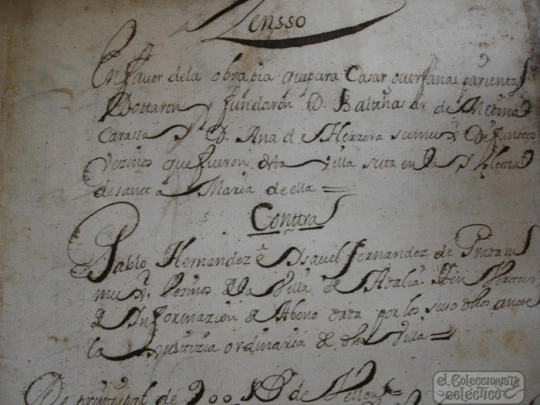 Zensso
En favor dela obra pia que para Casar Huerfanas parientas
Dottaron y fundaron D. Baltasar de Medina
Carassa y D. Ana de Herrera su muger Defuntos
Vezinos que fueron desta Villa sita en la Yglesia
de sancta Maria de ella =
Contra
Pablo Hernandez e Ysauel fernandez de Prada su
mug.r Vezinos de la Villa de Atalia
Informazion de Abono dada por los suso dhos ante
la Justizia ordinaria de dha Villa =
De prinzipal de 200 Ds de Vellon =
el Coleccionista
ecléctico